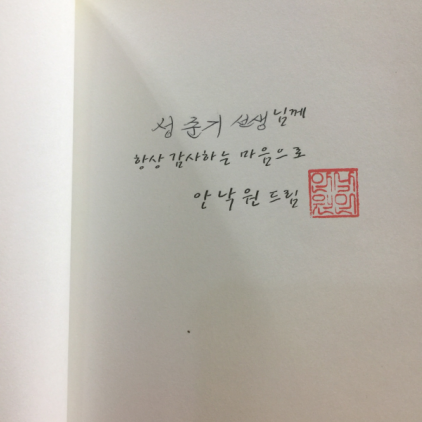 성 준기 선생님께
항상 감사하는 마음으로
안 낙 원 드림